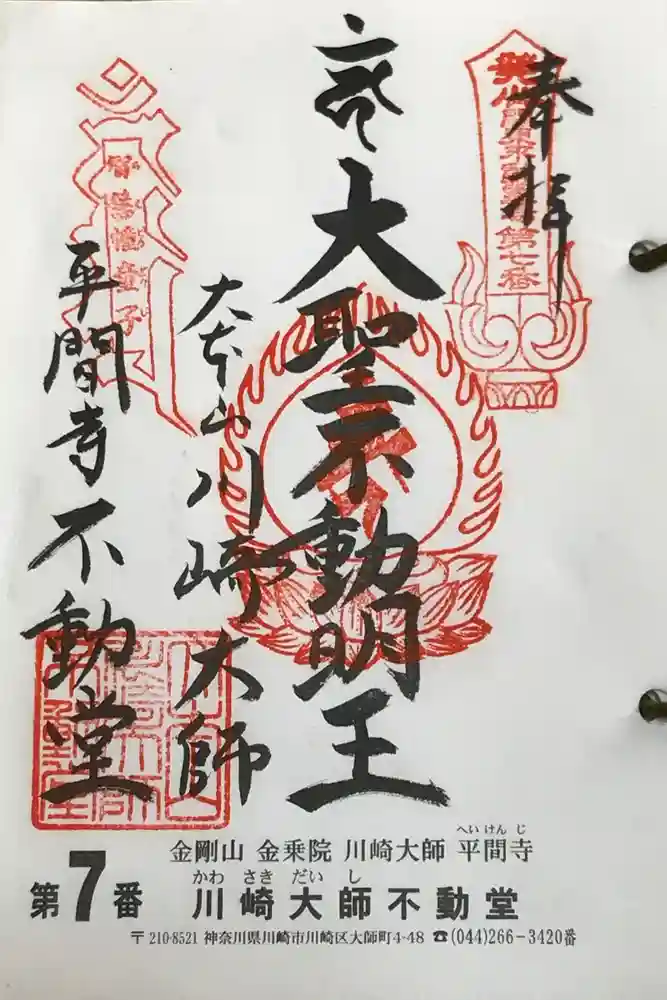 奉拝
大聖不動明王
大本山川崎大師
平間寺不動堂
第七番
へいけんじ
金剛山 金乗院 川崎大師 平間寺
第7番
かわさきだいし
川崎大師不動堂
〒210-8521 神奈川県川崎市川崎区大師町4-48 ☎(044)266-3420番